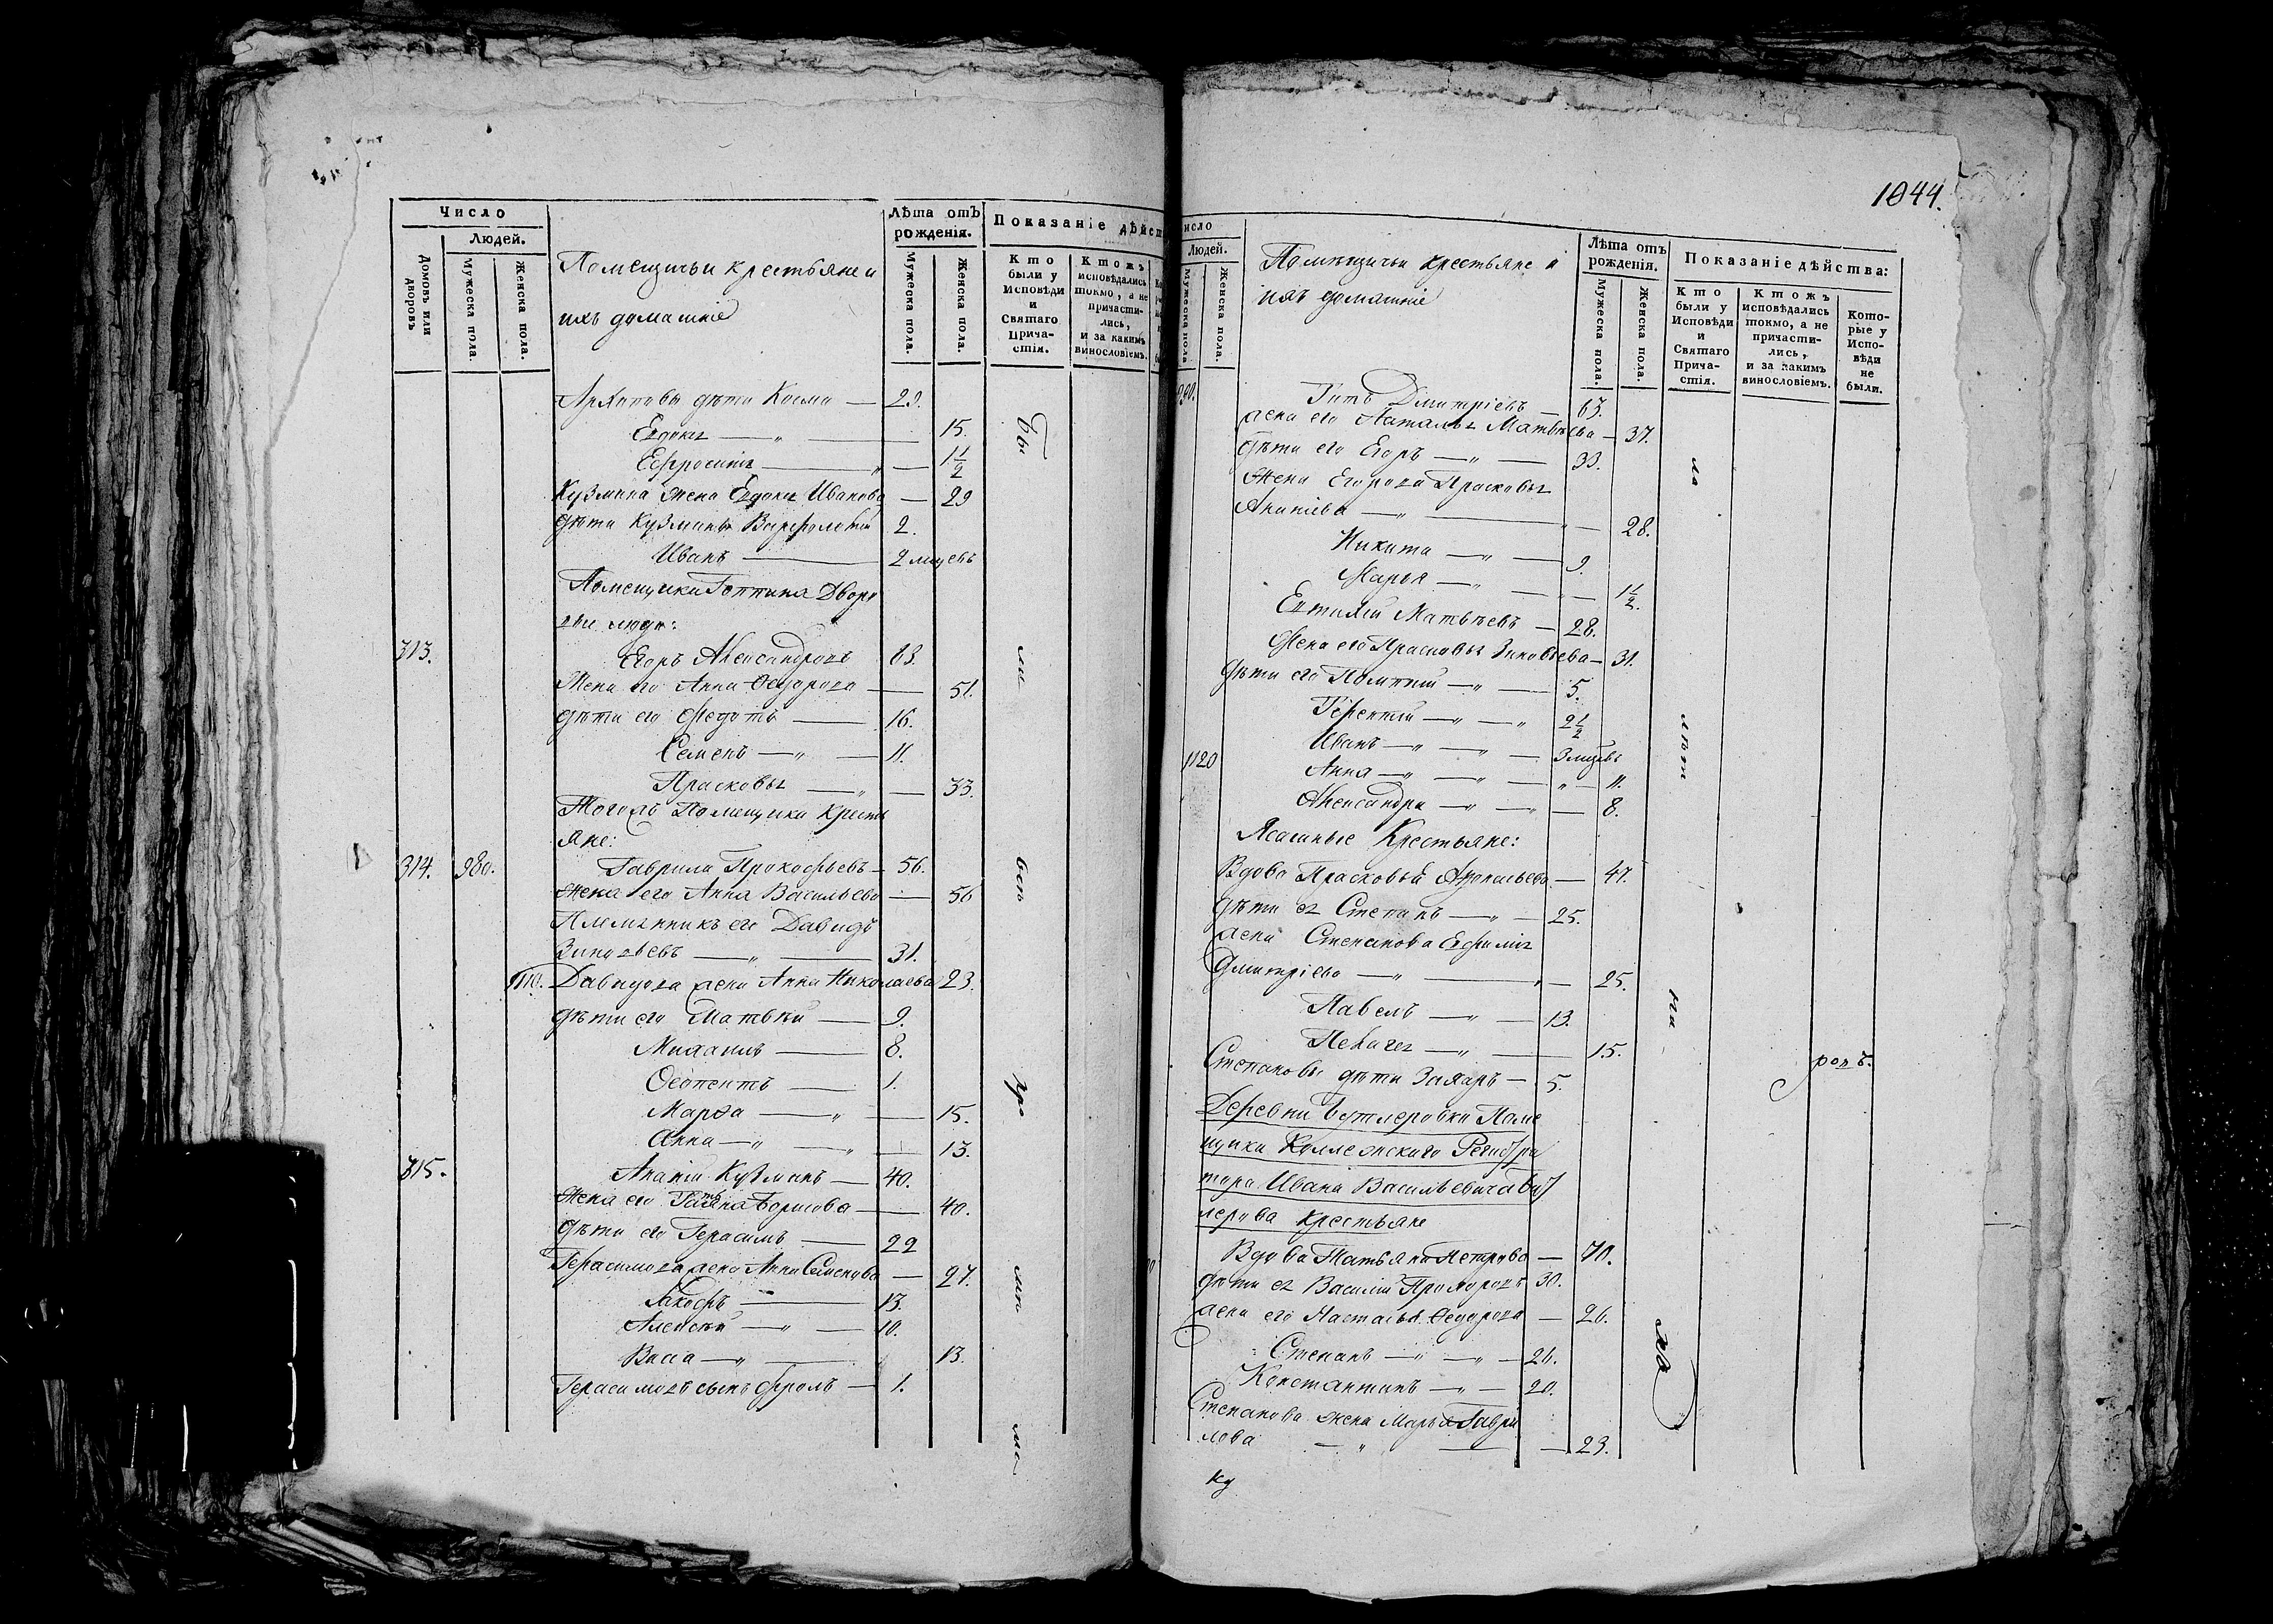 Число
Людей.
Домовъ или дворовъ
Мужеска пола.
Женска пола.
Помещичьи крестьяне и
ихъ домашніе
Лѣта отъ рожденія.
Мужеска пола.
Женска пола.
Показаніе дѣйст
Кто были у Исповѣди и Святаго Прича-стія.
Ктожъ исповѣдались токмо, а не причасти-лись, и за какимъ винословіемъ.
Архиповы дѣти Косма — 29.
Евдокія — 15.
Ефросинія — 1 1/2
Кузмина жена Евдокия Иванова — 29
дѣти Кузмины Варфоломей 2.
Иванъ — 2 мцевъ
Помещика Готтина Дворо
вые люди:
313. Егоръ Александровъ 63.
Жена его Анна Ѳедорова — 51.
дѣти его Федотъ — 16.
Семенъ — 11.
Прасковья — 33.
Тогожъ Помещика Кресть
яне:
314. 980. Гаврила Прокофьевъ — 56.
жена его Анна Васильева — 56
Племянникъ его Давидъ
Зиновьевъ — 31.
1110. Давыдова жена Анна Николаева 23.
дѣти его Матвѣй — 9.
Михаилъ — 8.
1.
Марѳа — 15.
Анна — 13.
315. Ананій Кузминъ — 40.
Жена его Татьяна Борисова — 40.
дѣти его Герасимъ — 22
Герасимова жена Анна Семенова — 27.
Якофъ — 13.
Алексѣй — 10.
Васса — 13.
Герасимовъ сынъ Фролъ — 1.
бы
ли
всѣ
кро
мѣ
ма
1044.
исло
Людей.
Мужеска пола
Женска пола.
Помѣщичьи крестьяне и
ихъ домашніе
Лѣта отъ рожденія.
Мужеска пола.
Женска пола.
Показаніе дѣйства:
Кто были у Исповѣди и Святаго Прича-стія.
Ктожъ исповѣдались токмо, а не причасти-лись, и за какимъ винословіемъ.
Кото-рые у Испо-вѣди не были.
990. Титъ Димитріевъ — 63.
жена его Наталья Матвѣева — 37.
дѣти его Егоръ — 33.
жена Егорова Прасковья
Ананіева — 28.
Никита — 9.
Марья — 1 1/2.
Евтихій Матвѣевъ — 28.
Жена его Прасковья Зиновьева — 31.
дѣти его — 5.
Терентій — 2 1/2
Иванъ — 3 мцевъ
1120 Анна — 11.
Александра — 8.
Ясашные Крестьяне:
Вдова Прасковья — 47.
дѣти ея Степанъ — 25.
жена Степанова Ефимія
Дмитріева — 25.
Павелъ — 13.
Пелагея — 15.
Степановы дѣти Захаръ — 5.
Деревни Бутлеровки Поме
щика Коллежскаго Регистра
тора Ивана Васильевича Бут
лерова крестьяне
Вдова Татьяна Петрова — 70.
дѣти ея Василій 30.
жена его Настасья Ѳедорова — 26.
Степанъ — 26.
Константинъ — 20.
Степанова жена Марья Гаври
лова — 23.
ло
лѣт
ни
хъ
ровъ.
ку